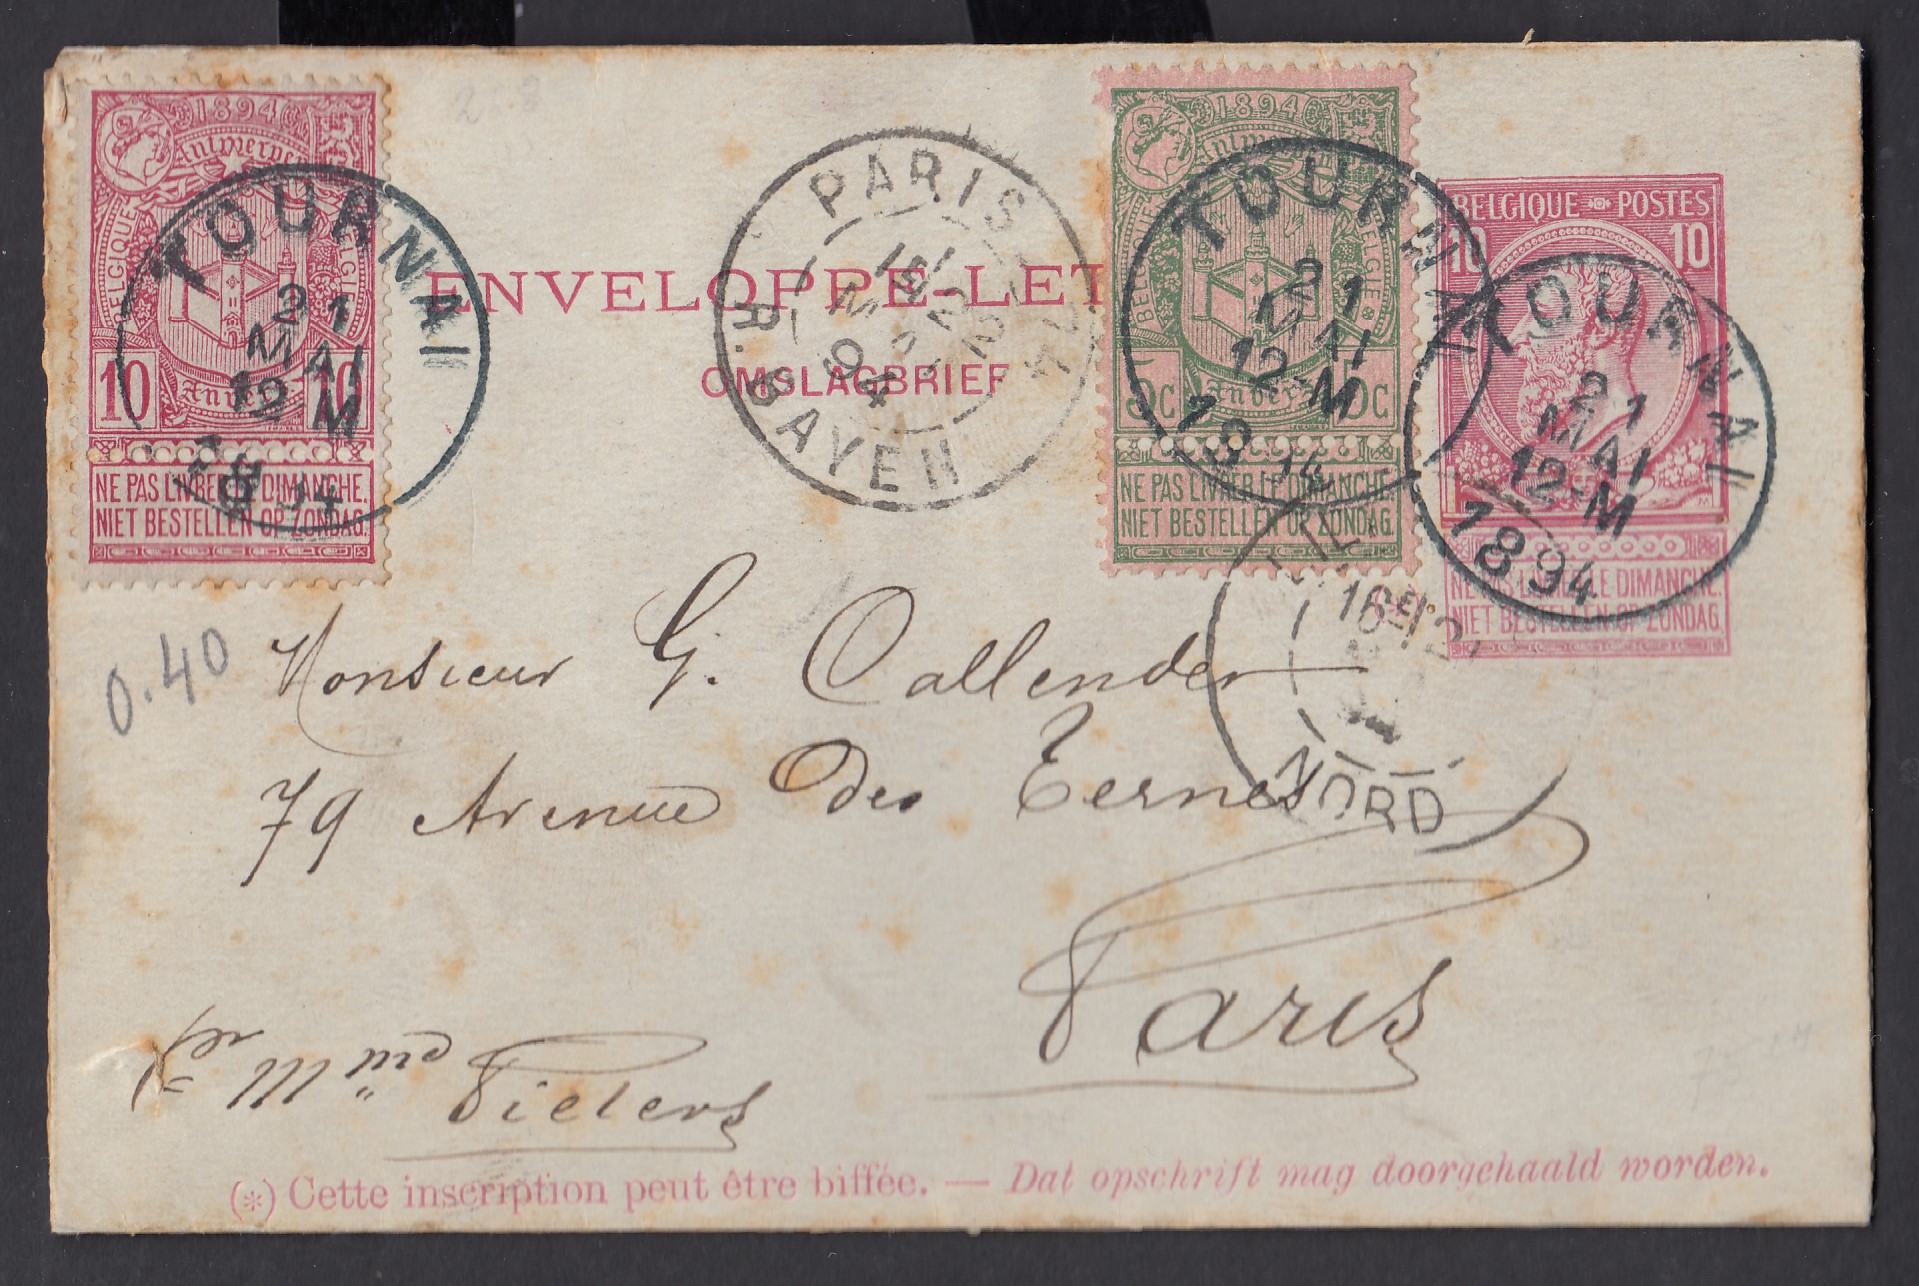 1894
Antwerpen
BELGIQUE
BELGIE
10 10
Anvers
NE PAS LIVRER LE DIMANCHE.
NIET BESTELLEN OP ZONDAG.
TOURNAI
21
MAI
12-M
1894
ENVELOPPE-LET
OMSLAGBRIEF
PARIS 74
MAI
94
R. BAYEN
1894
Antwerpen
BELGIQUE
BELGIE
5c 5c
Anvers
NE PAS LIVRER LE DIMANCHE.
NIET BESTELLEN OP ZONDAG.
TOURNAI
21
MAI
12-M
1894
BELGIQUE POSTES
10 10
NE PAS LIVRER LE DIMANCHE.
NIET BESTELLEN OP ZONDAG.
TOURNAI
21
MAI
12-M
1894
NORD
0.40
Monsieur G. Callender
79 Avenue des Ternes
Paris
pr Mme Pieters
(*) Cette inscription peut être biffée. — Dat opschrift mag doorgehaald worden.